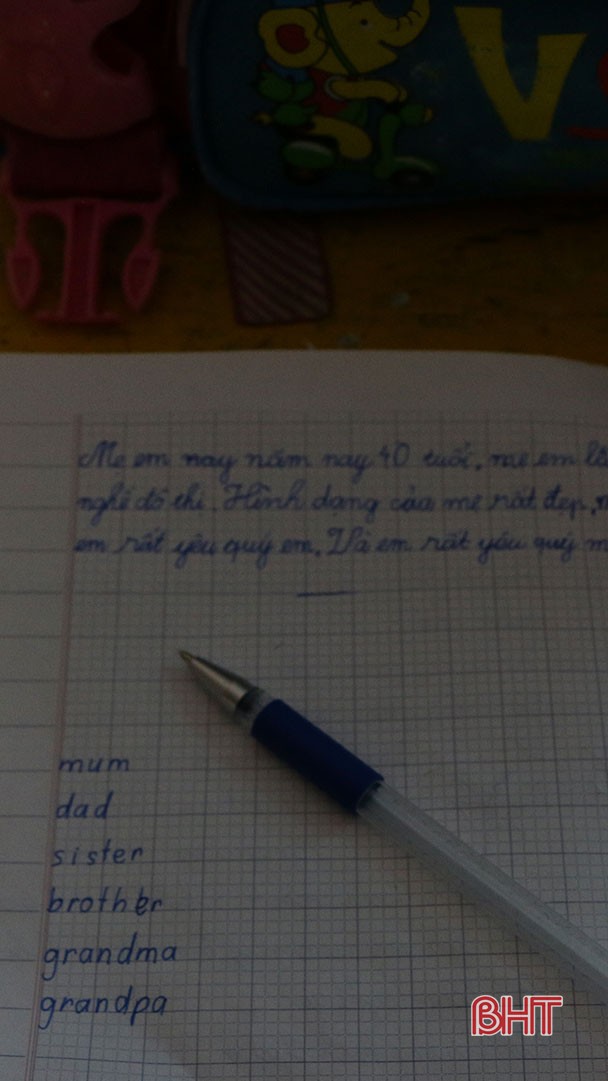 V
Mẹ em nay năm nay 40 tuổi, mẹ em là
nghề đô thi. Hình dạng của mẹ rất đẹp,
em rất yêu quý em. Và em rất yêu quý m
mum
dad
sister
brother
grandma
grandpa
BHT